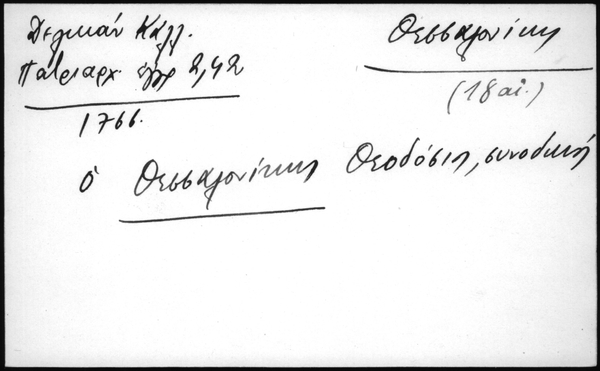 Δελικάν Καλλ.
Πατριαρχ. έγγρ 2,42
1766.
Θεσσαλονίκη
(18 αἰ.)
ὁ Θεσσαλονίκης Θεοδόσιος, συνοδική